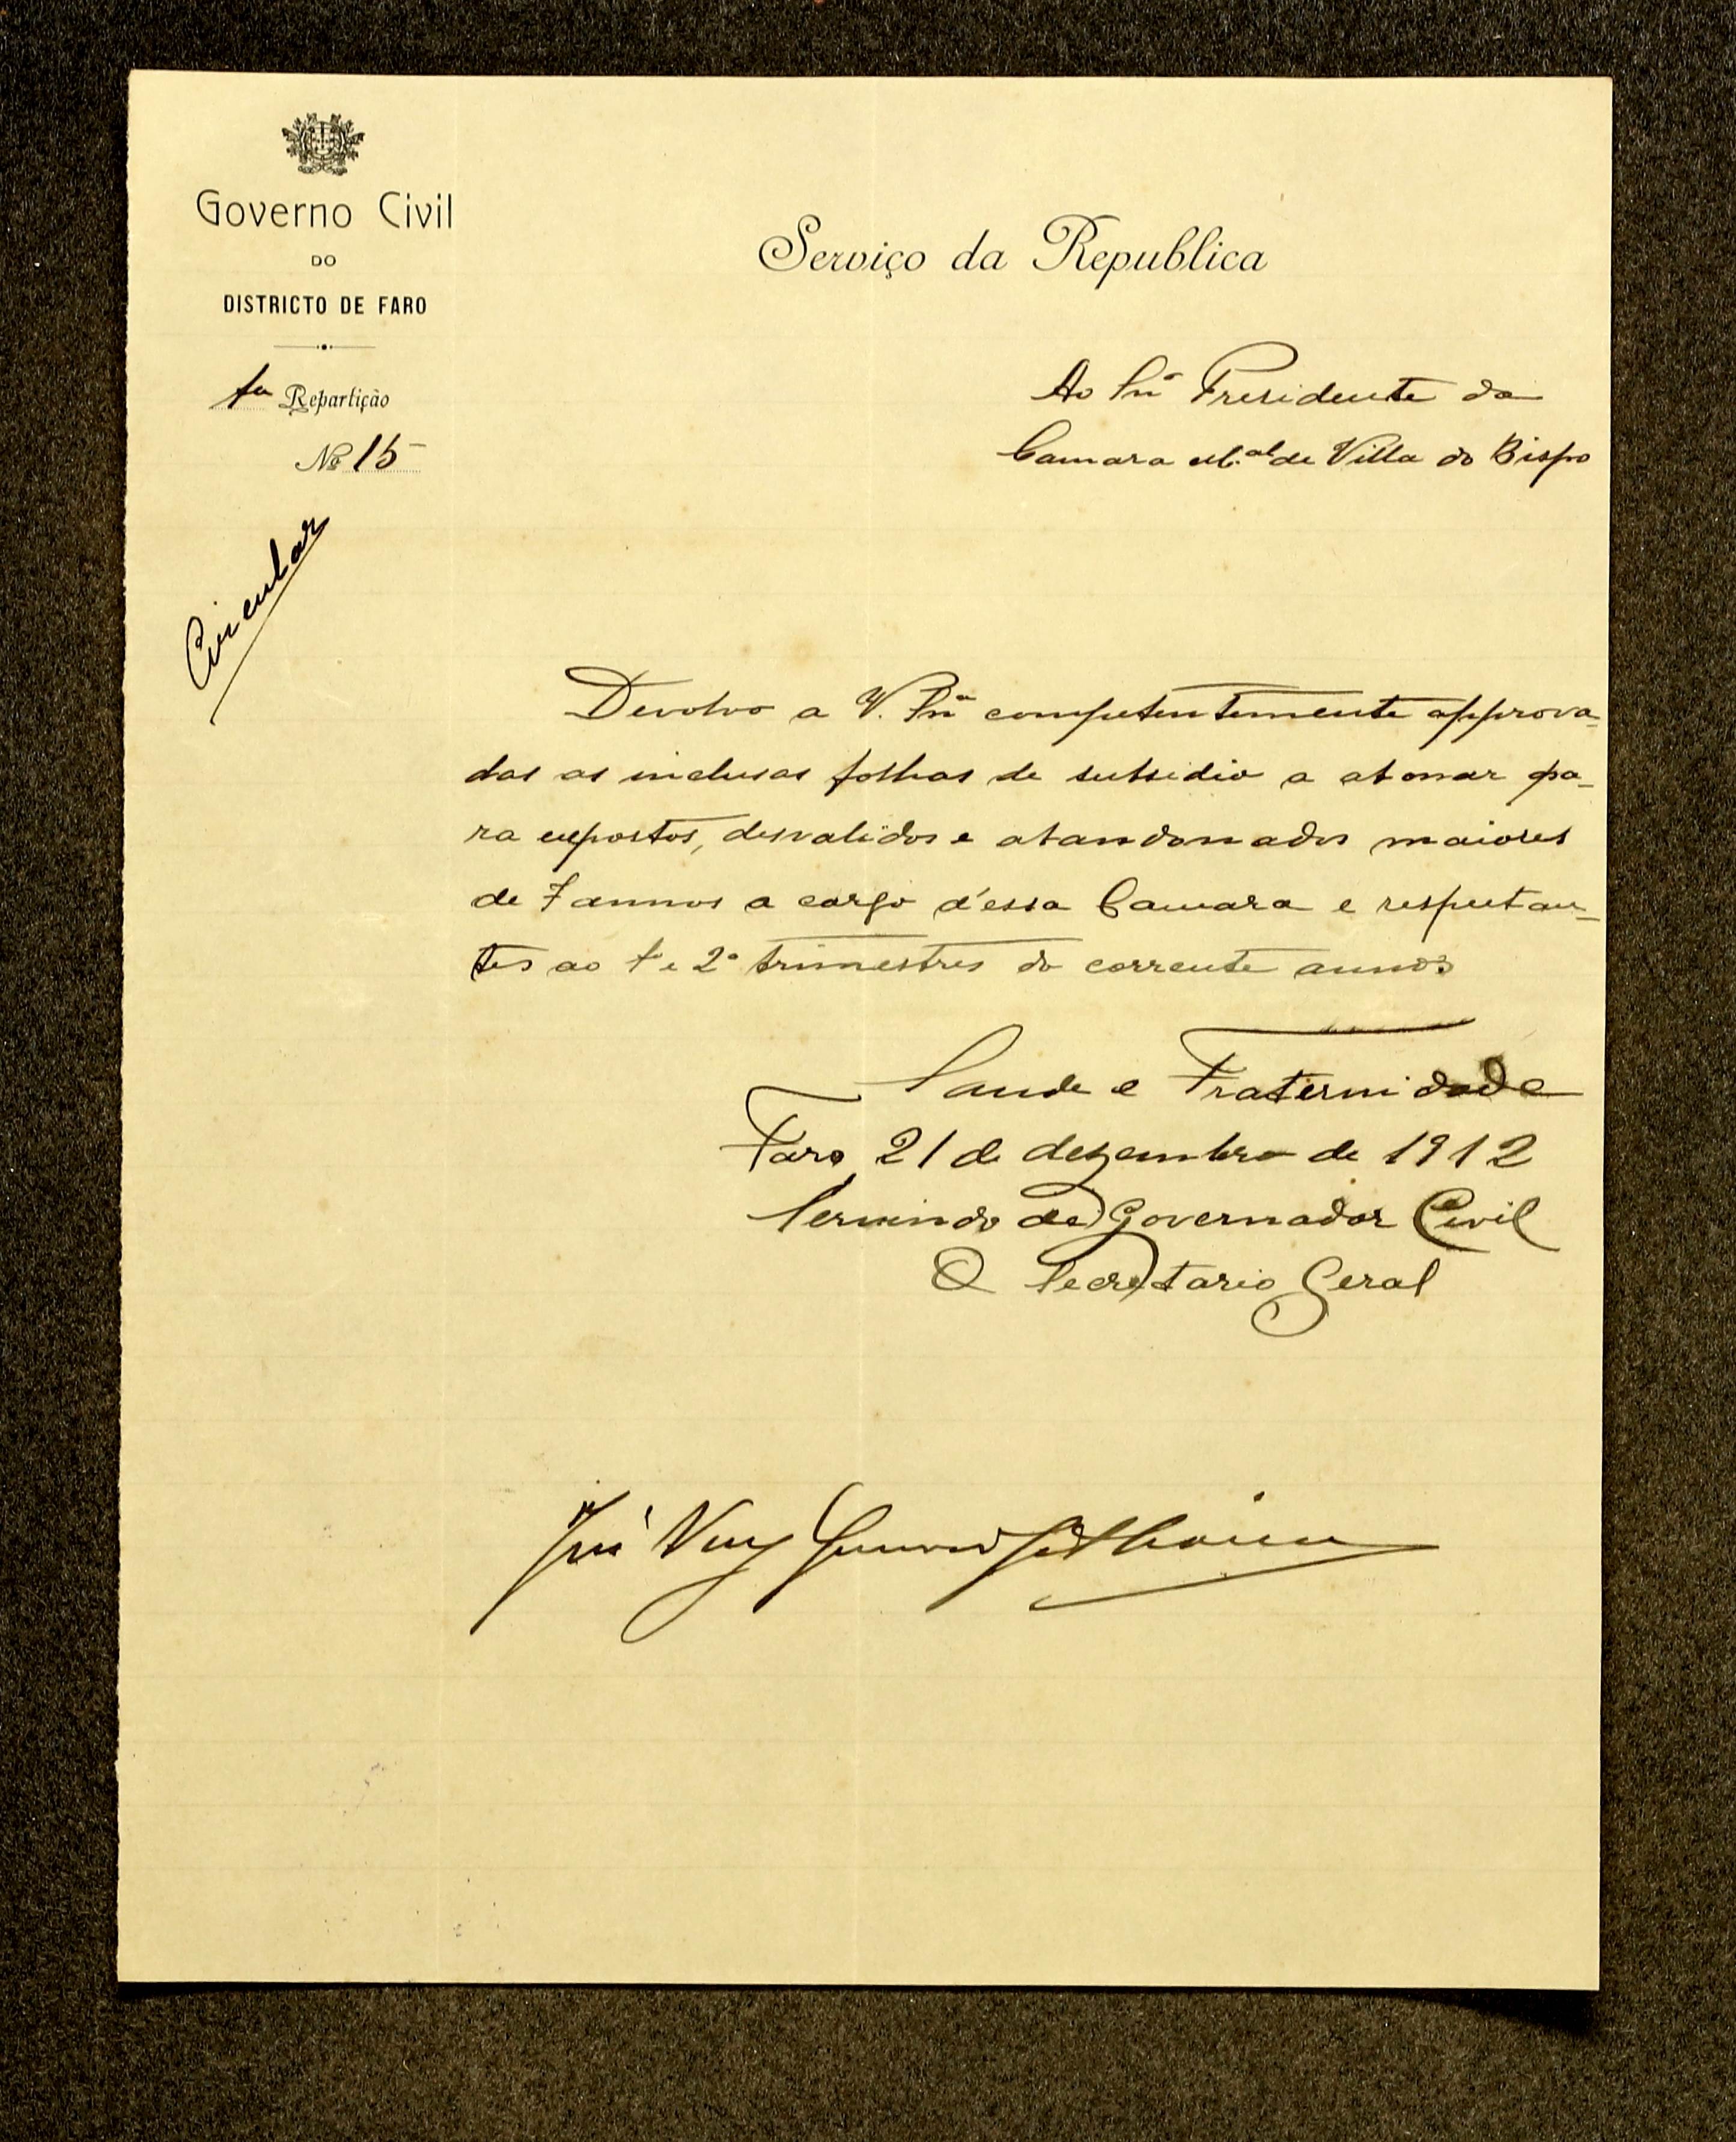 Governo Civil
DO
DISTRICTO DE FARO
1ª Repartição
Nº 15
Circular
Serviço da Republica
Ao Snr Presidente da
Camara M.al de Villa do Bispo
Devolvo a V. Sria competentemente approva-
das as inclusas folhas de subsidio a abonar pa-
ra expostos, desvalidos e abandonados maiores
de 7 annos a cargo d'essa Camara e respeitan-
tes ao 1º e 2º trimestres do corrente anno
Saude e Fraternidade
Faro, 21 de dezembro de 1912
Servindo de Governador Civil
O Secretario Geral
José Vaz